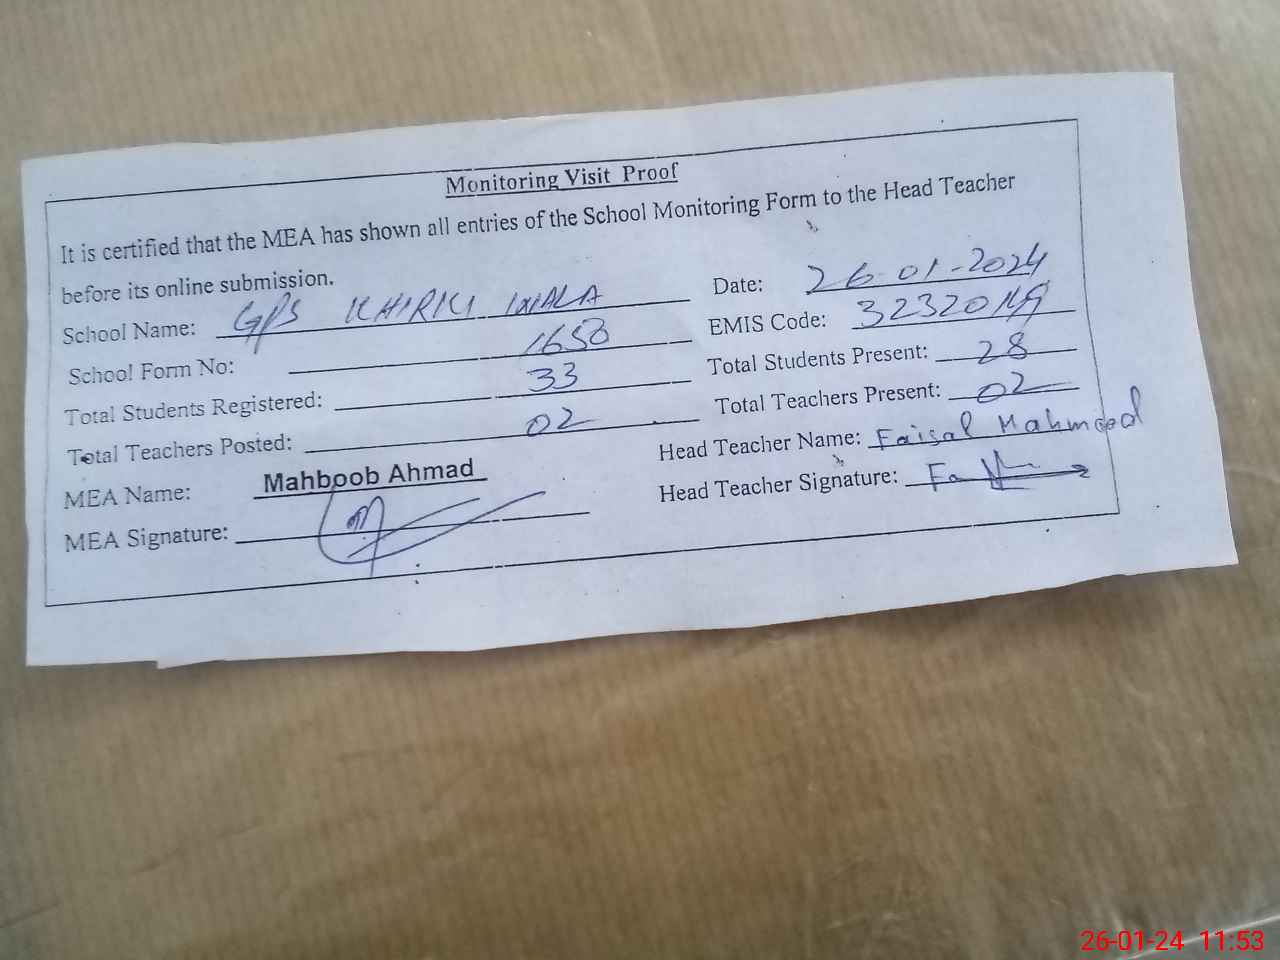 Monitoring Visit Proof
It is certified that the MEA has shown all entries of the School Monitoring Form to the Head Teacher
before its online submission.
Date: 26-01-2024
School Name: GPS KHIRKI WALA
EMIS Code:
School Form No: 1650
Total Students Present: 28
Total Students Registered: 33
Total Teachers Present: 02
Total Teachers Posted: 02
Head Teacher Name: Faisal Mahmood
MEA Name: Mahboob Ahmad
Head Teacher Signature:
MEA Signature:
26-01-24 11:53